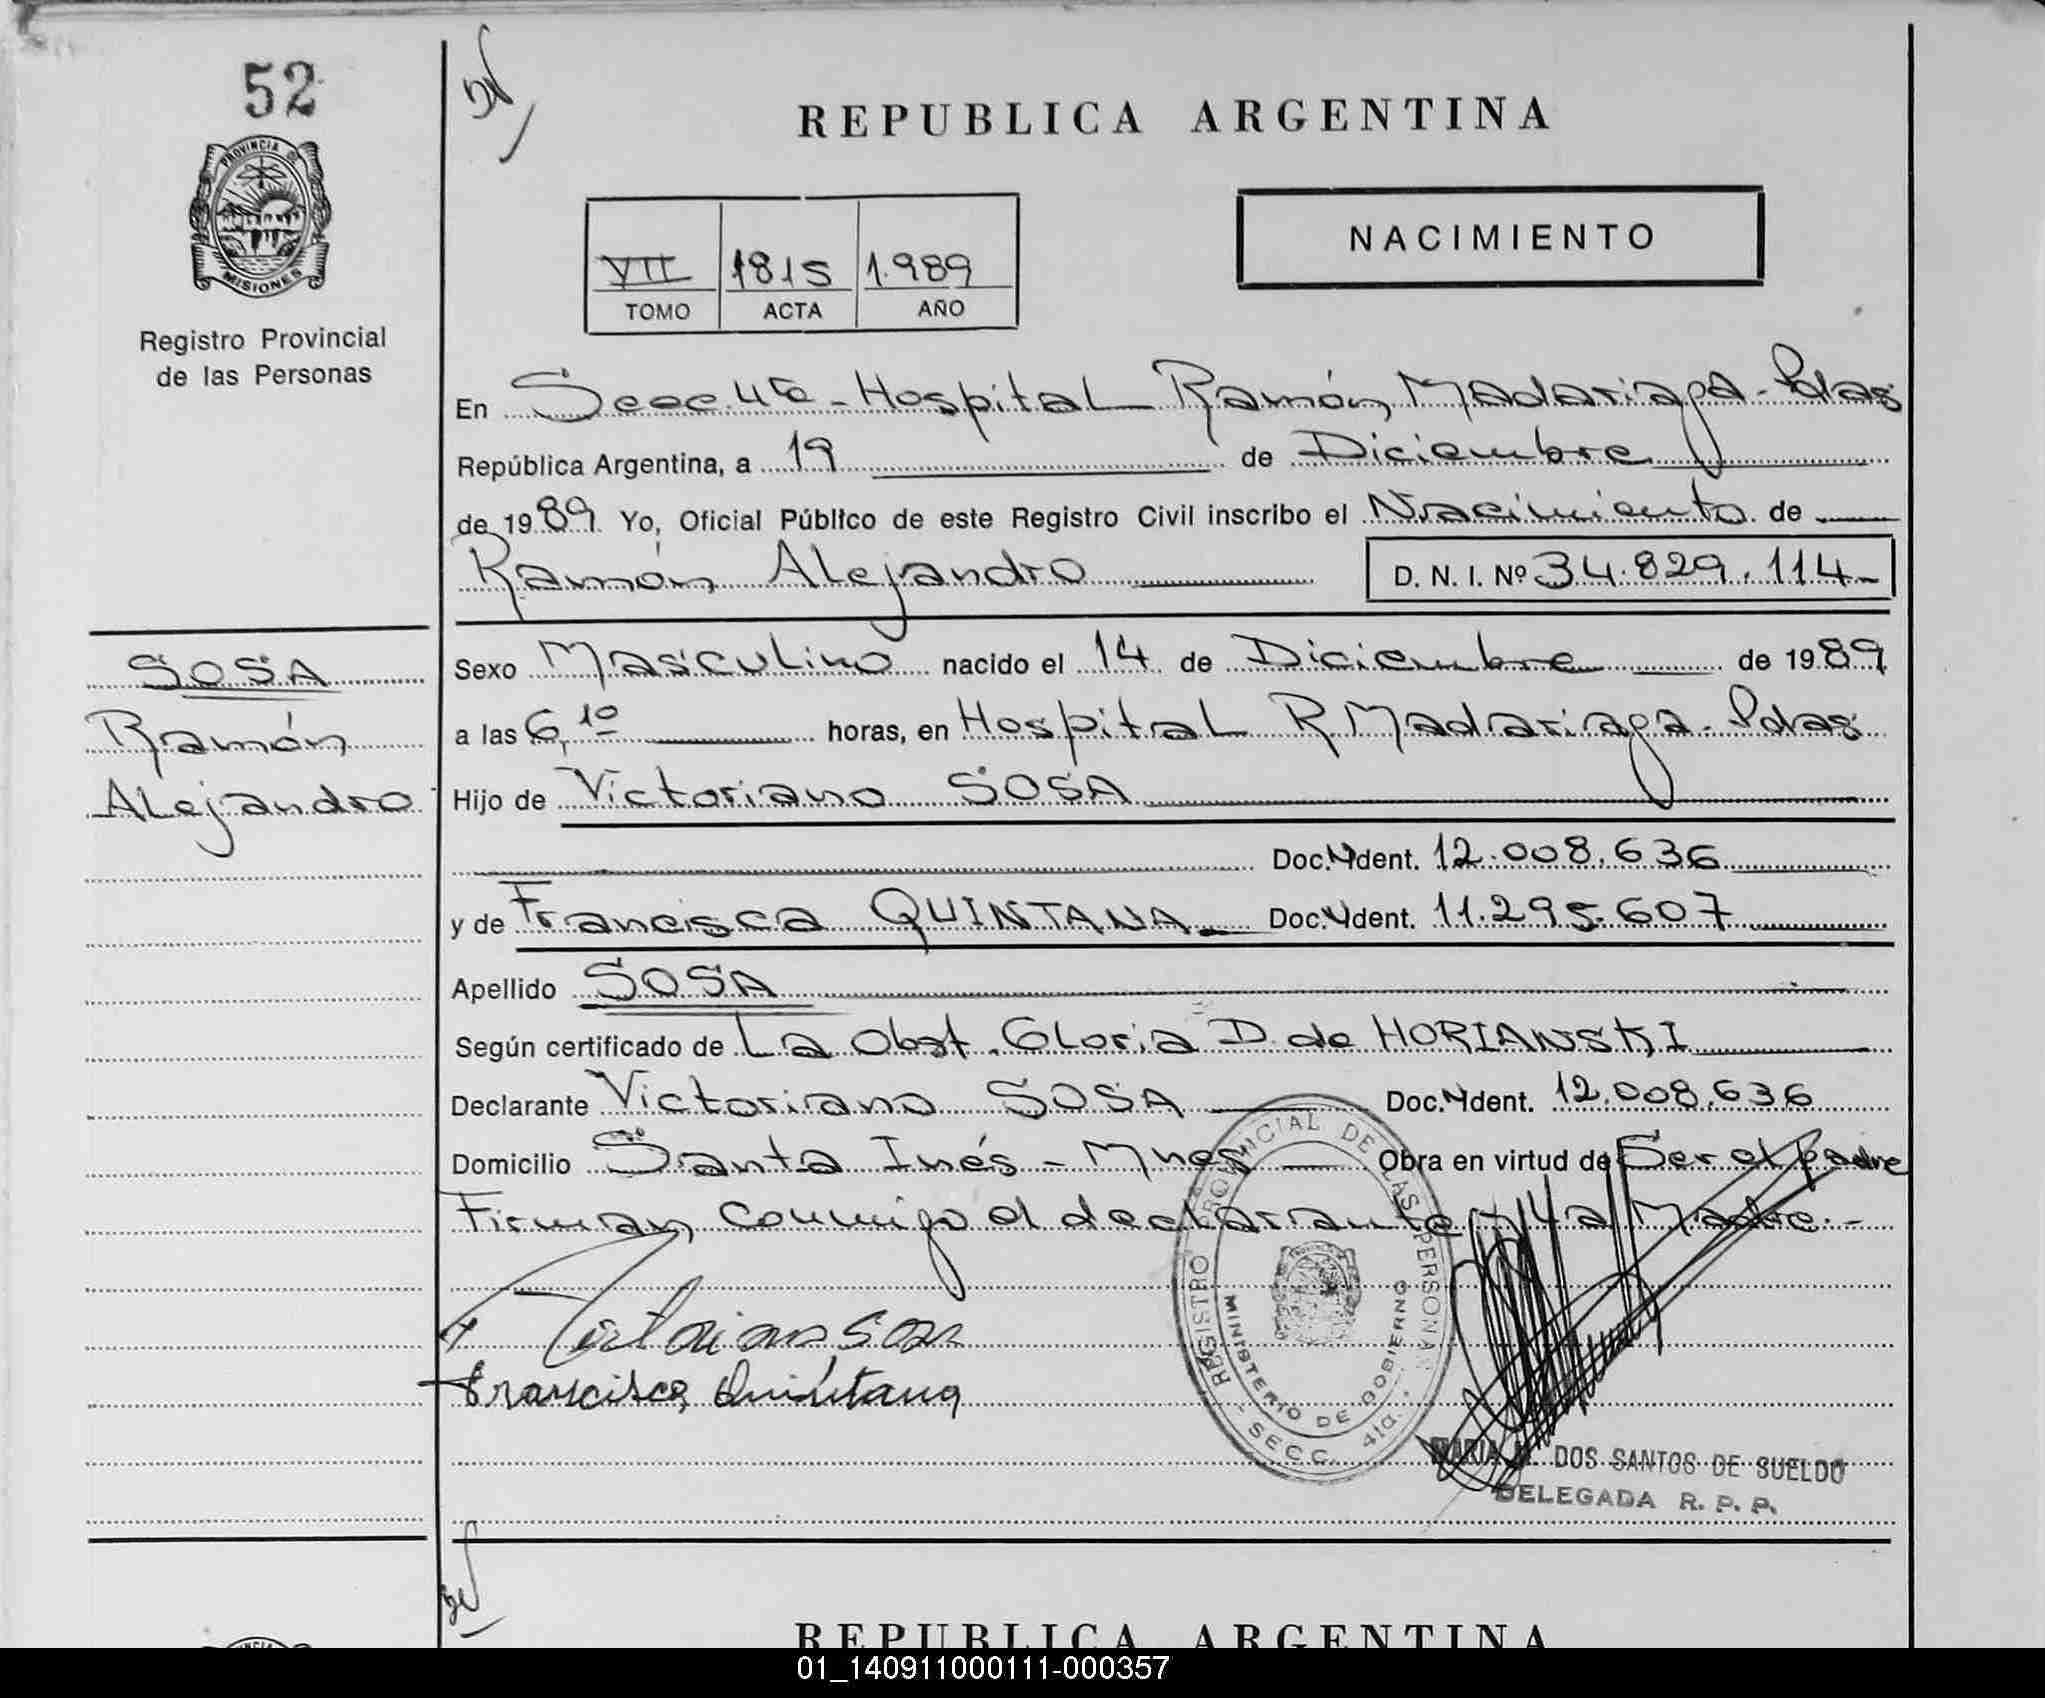 52
PROVINCIA DE
MISIONES
Registro Provincial
de las Personas
SOSA
Ramón
Alejandro
REPUBLICA ARGENTINA
VII 1815 1.989
TOMO ACTA AÑO
NACIMIENTO
En Secc. 4ta - Hospital Ramón Madariaga - Pdas
República Argentina, a 19 de Diciembre
de 1989 Yo, Oficial Público de este Registro Civil inscribo el Nacimiento de
Ramón Alejandro D. N. I. Nº 34.829.114-
Sexo Masculino nacido el 14 de Diciembre de 1989
a las 6,10 horas, en Hospital R. Madariaga - Pdas
Hijo de Victoriano SOSA
Doc. Ident. 12.008.636
y de Francisca QUINTANA Doc. Ident. 11.295.607
Apellido SOSA
Según certificado de La Obst. Gloria D. de HORIANSKI
Declarante Victoriano SOSA Doc. Ident. 12.008.636
Domicilio Santa Inés - Mnes Obra en virtud de Ser el padre
Firman conmigo el declarante y la Madre.-
Victoriano Sosa
Francisca Quintana
REGISTRO PROVINCIAL DE LAS PERSONAS
MINISTERIO DE GOBIERNO
- SECC. 4ta. -
MARIA DOS SANTOS DE SUELDO
DELEGADA R. P. P.
REPUBLICA ARGENTINA
01_140911000111-000357